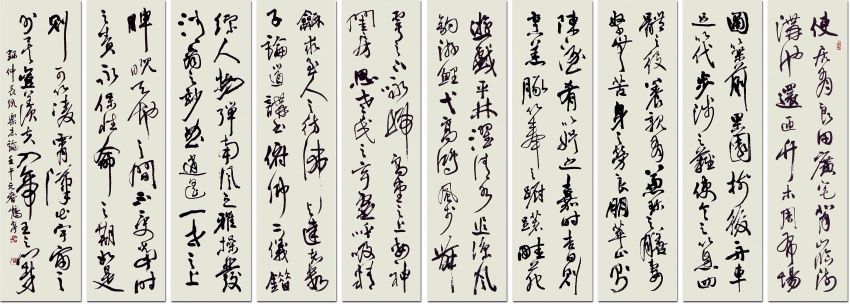 使居有良田廣宅背山臨流
溝池環匝竹木周布場
圃築前果園樹後舟車
足以代步涉之難使令足以息四
體之役養親有兼珍之膳妻
孥無苦身之勞良朋萃止則
陳酒肴以娛之嘉時吉日則
烹羔豚以奉之躊躇畦苑
遊戲平林濯清水追涼風
釣游鯉弋高鴻風於舞
雩之下詠歸高堂之上安神
閨房思老氏之玄虛呼吸精
和求至人之仿佛與達者數
子論道講書俯仰二儀錯
綜人物彈南風之雅操發
清商之妙曲逍遙一世之上
睥睨天地之間不受當時
之責永保性命之期如是
則可以凌霄漢出宇宙之
外矣豈羨夫入帝王之門哉
仲長統樂志論壬午元宵